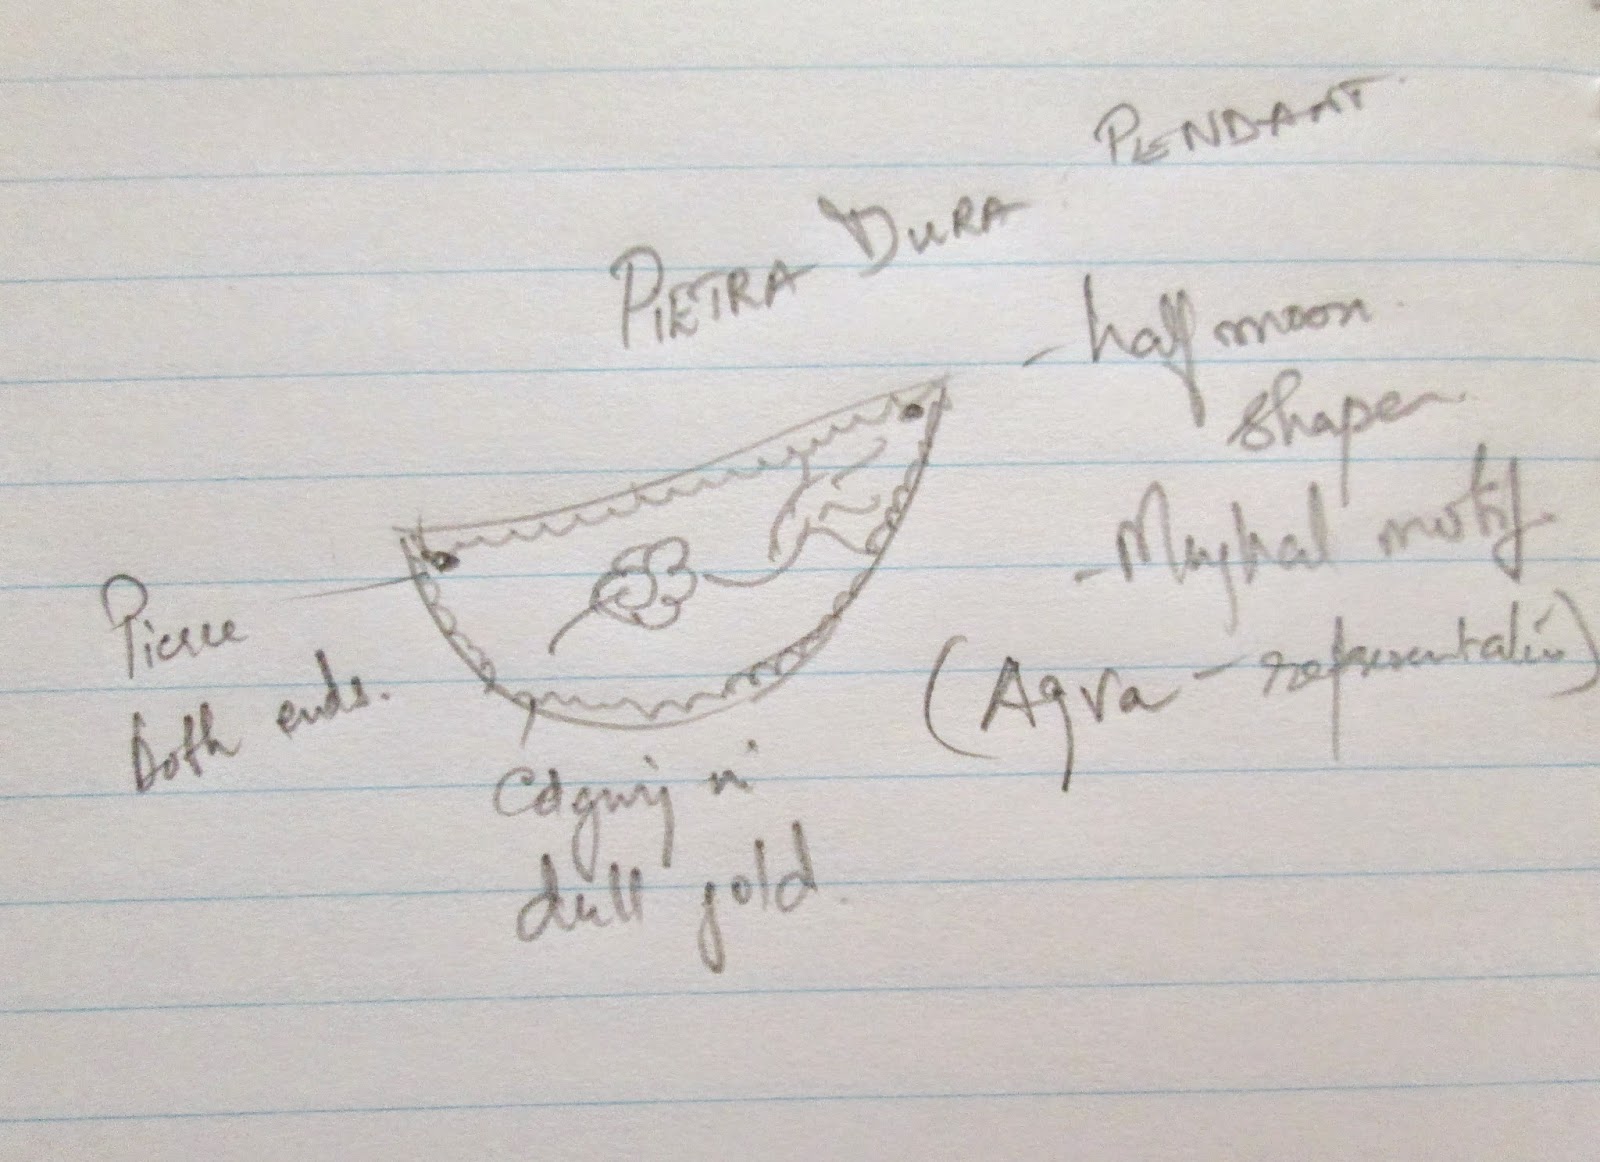 PIETRA DURA PENDANT
- half moon
shape
- Mughal motif
(Agra - representation)
Pierce
both ends.
Edging in
dull gold.